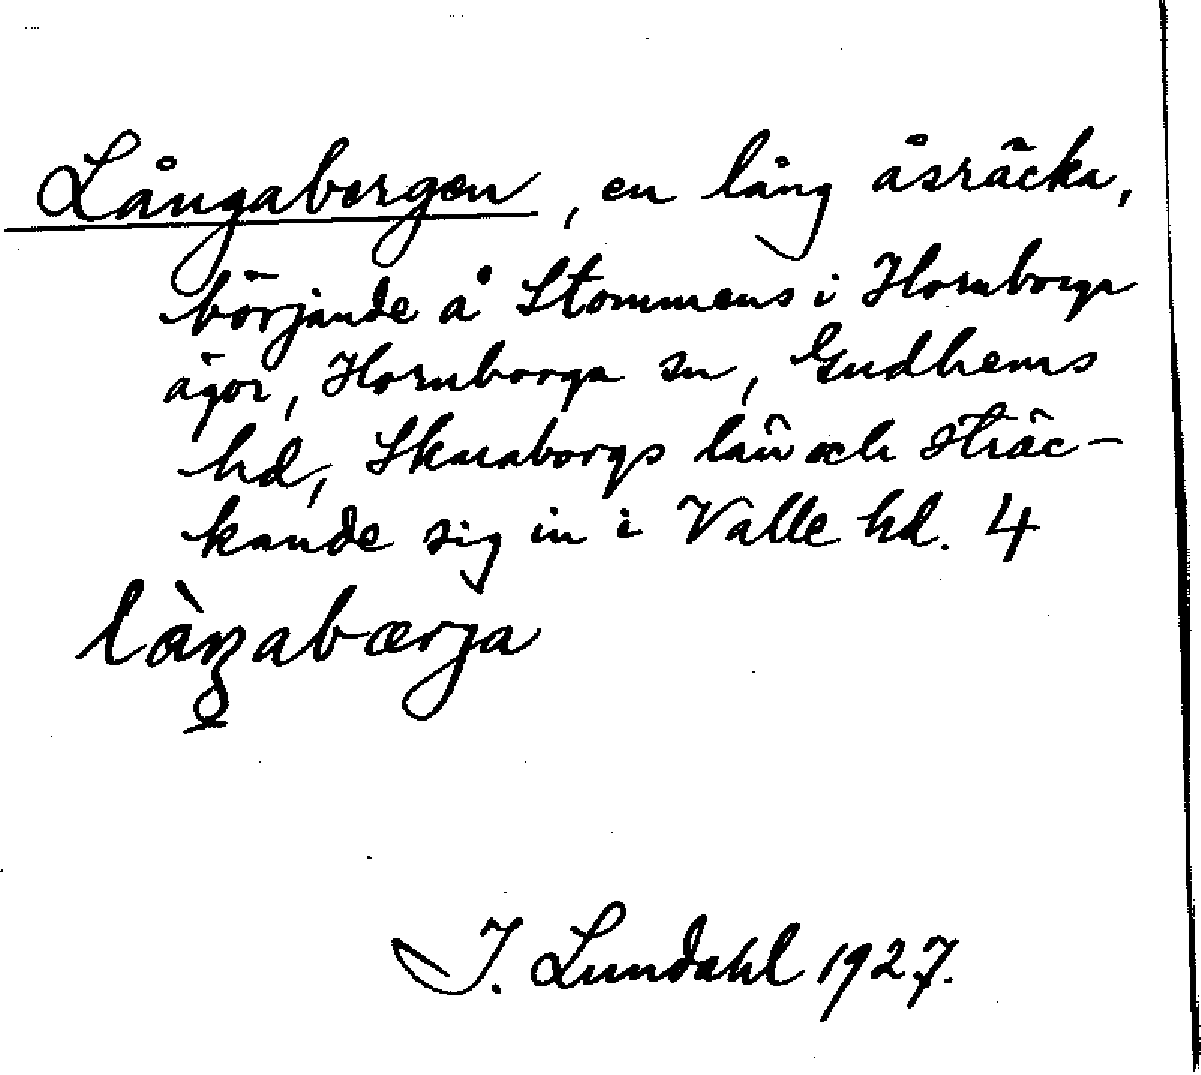 Långabergen, en lång åsräcka,
börjande å Stommens i Hornborga
ägor, Hornborga sn, Gudhems
hd, Skaraborgs län och sträc-
kande sig in i Valle hd. 4
làŋabærja
I. Lundahl 1927.